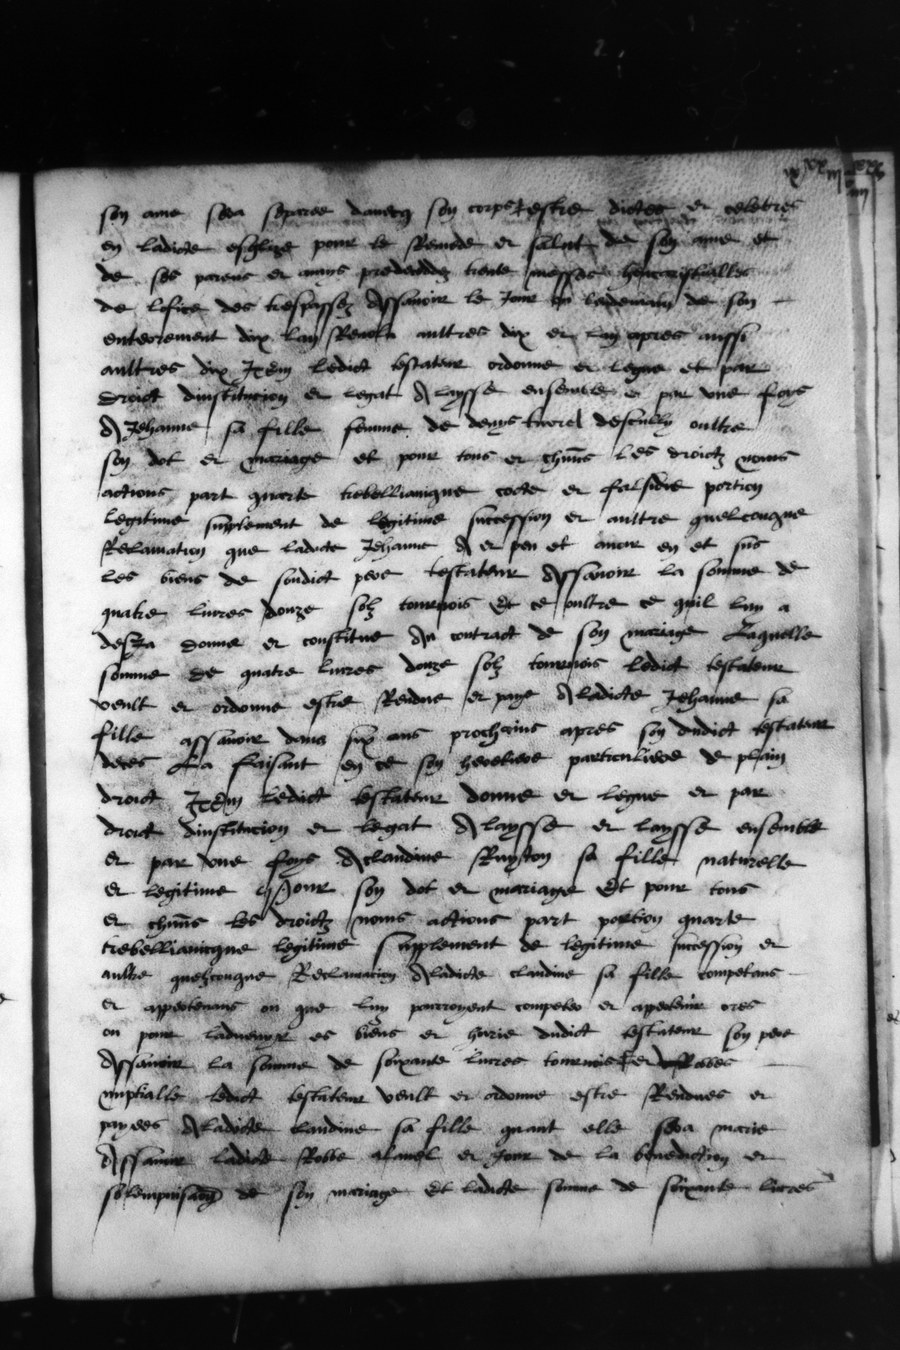 son ame sera separee davecq son corps estre dictes et celebres
en ladicte esglize pour le remede et salut de son ame et
de ses parens et amys predecedez trente messes
de lofice des trespassez Assavoir le Jour ou lendemain de son
enterrement dix lan Revolu aultres dix et lan apres aussi
aultres dix Item ledict testateur ordonne et legue et par
droict dinstitucion et legat A laysse ensemble et par une foys
A Jehanne sa fille femme de denys oultre
son dot et mariage et pour tous et chuns les droictz noms
actions part quarte trebellianicque et falsidie portion
legitime supplement de legitime succession et aultre quelconque
Reclamation que ladicte Jehanne A et peu et avoir en et sus
les biens de sondict pere testateur Assavoir la somme de
quatre livres douze solz tournois Et ce oultre ce quil luy a
desJa donne et constitue Au contract de son mariage Laquelle
somme de quatre livres douze solz tournois ledict testateur
veult et ordonne estre Rendue et paye A ladicte Jehanne sa
fille assavoir dans six ans prochains apres son dudict testateur
deces La faisant en ce son heretiere particuliere de plain
droict Item ledict testateur donne et legue et par
droict dinstitucion et legat A laysse et laysse ensemble
et par une foys A claudine sa fille naturelle
et legitime Pour son dot et mariage Et pour tous
et chuns les droictz noms actions part portion quarte
trebellianicque legitime Supplement de legitime succession et
aultre quelzconque Reclamacion A ladicte claudine sa fille competans
et appertenans ou que luy pourroyent competer et appertenir ores
ou pour ladvenyr es biens et hoirie dudict testateur son pere
Assavoir la somme de soixante livres tournois et
nuptialle ledict testateur veult et ordonne estre Rendues et
payees A ladicte claudine sa fille quant elle sera marie
Assavoir ladicte Robbe et Jour de la benediction et
de son mariage Et ladicte somme de soixante livres